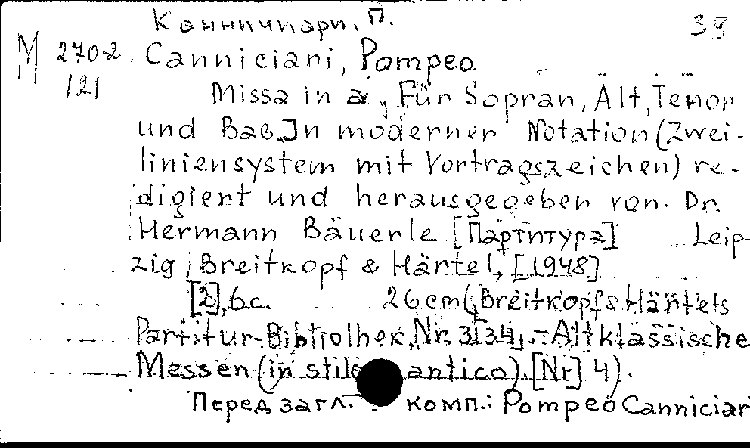 Канничиари, П. 38
М 270-2 Canniciari, Pompeo
121
Missa in a, Für Sopran, Alt, Tenor
und Bas. In moderner Notation (Zwei-
liniensystem mit Vortragszeichen) re-
digiert und herausgegeben von Dr.
Hermann Bäuerle [Партитура] Leip-
zig, Breitkopf & Härtel, [1948]
[2], 6 c. 26 cm (Breitkopf & Härtels
Partitur-Bibliothek, Nr. 3134. - Altklassische
Messen (in stile antico). [Nr] 4).
Перед загл. комп.: Pompeo Canniciari